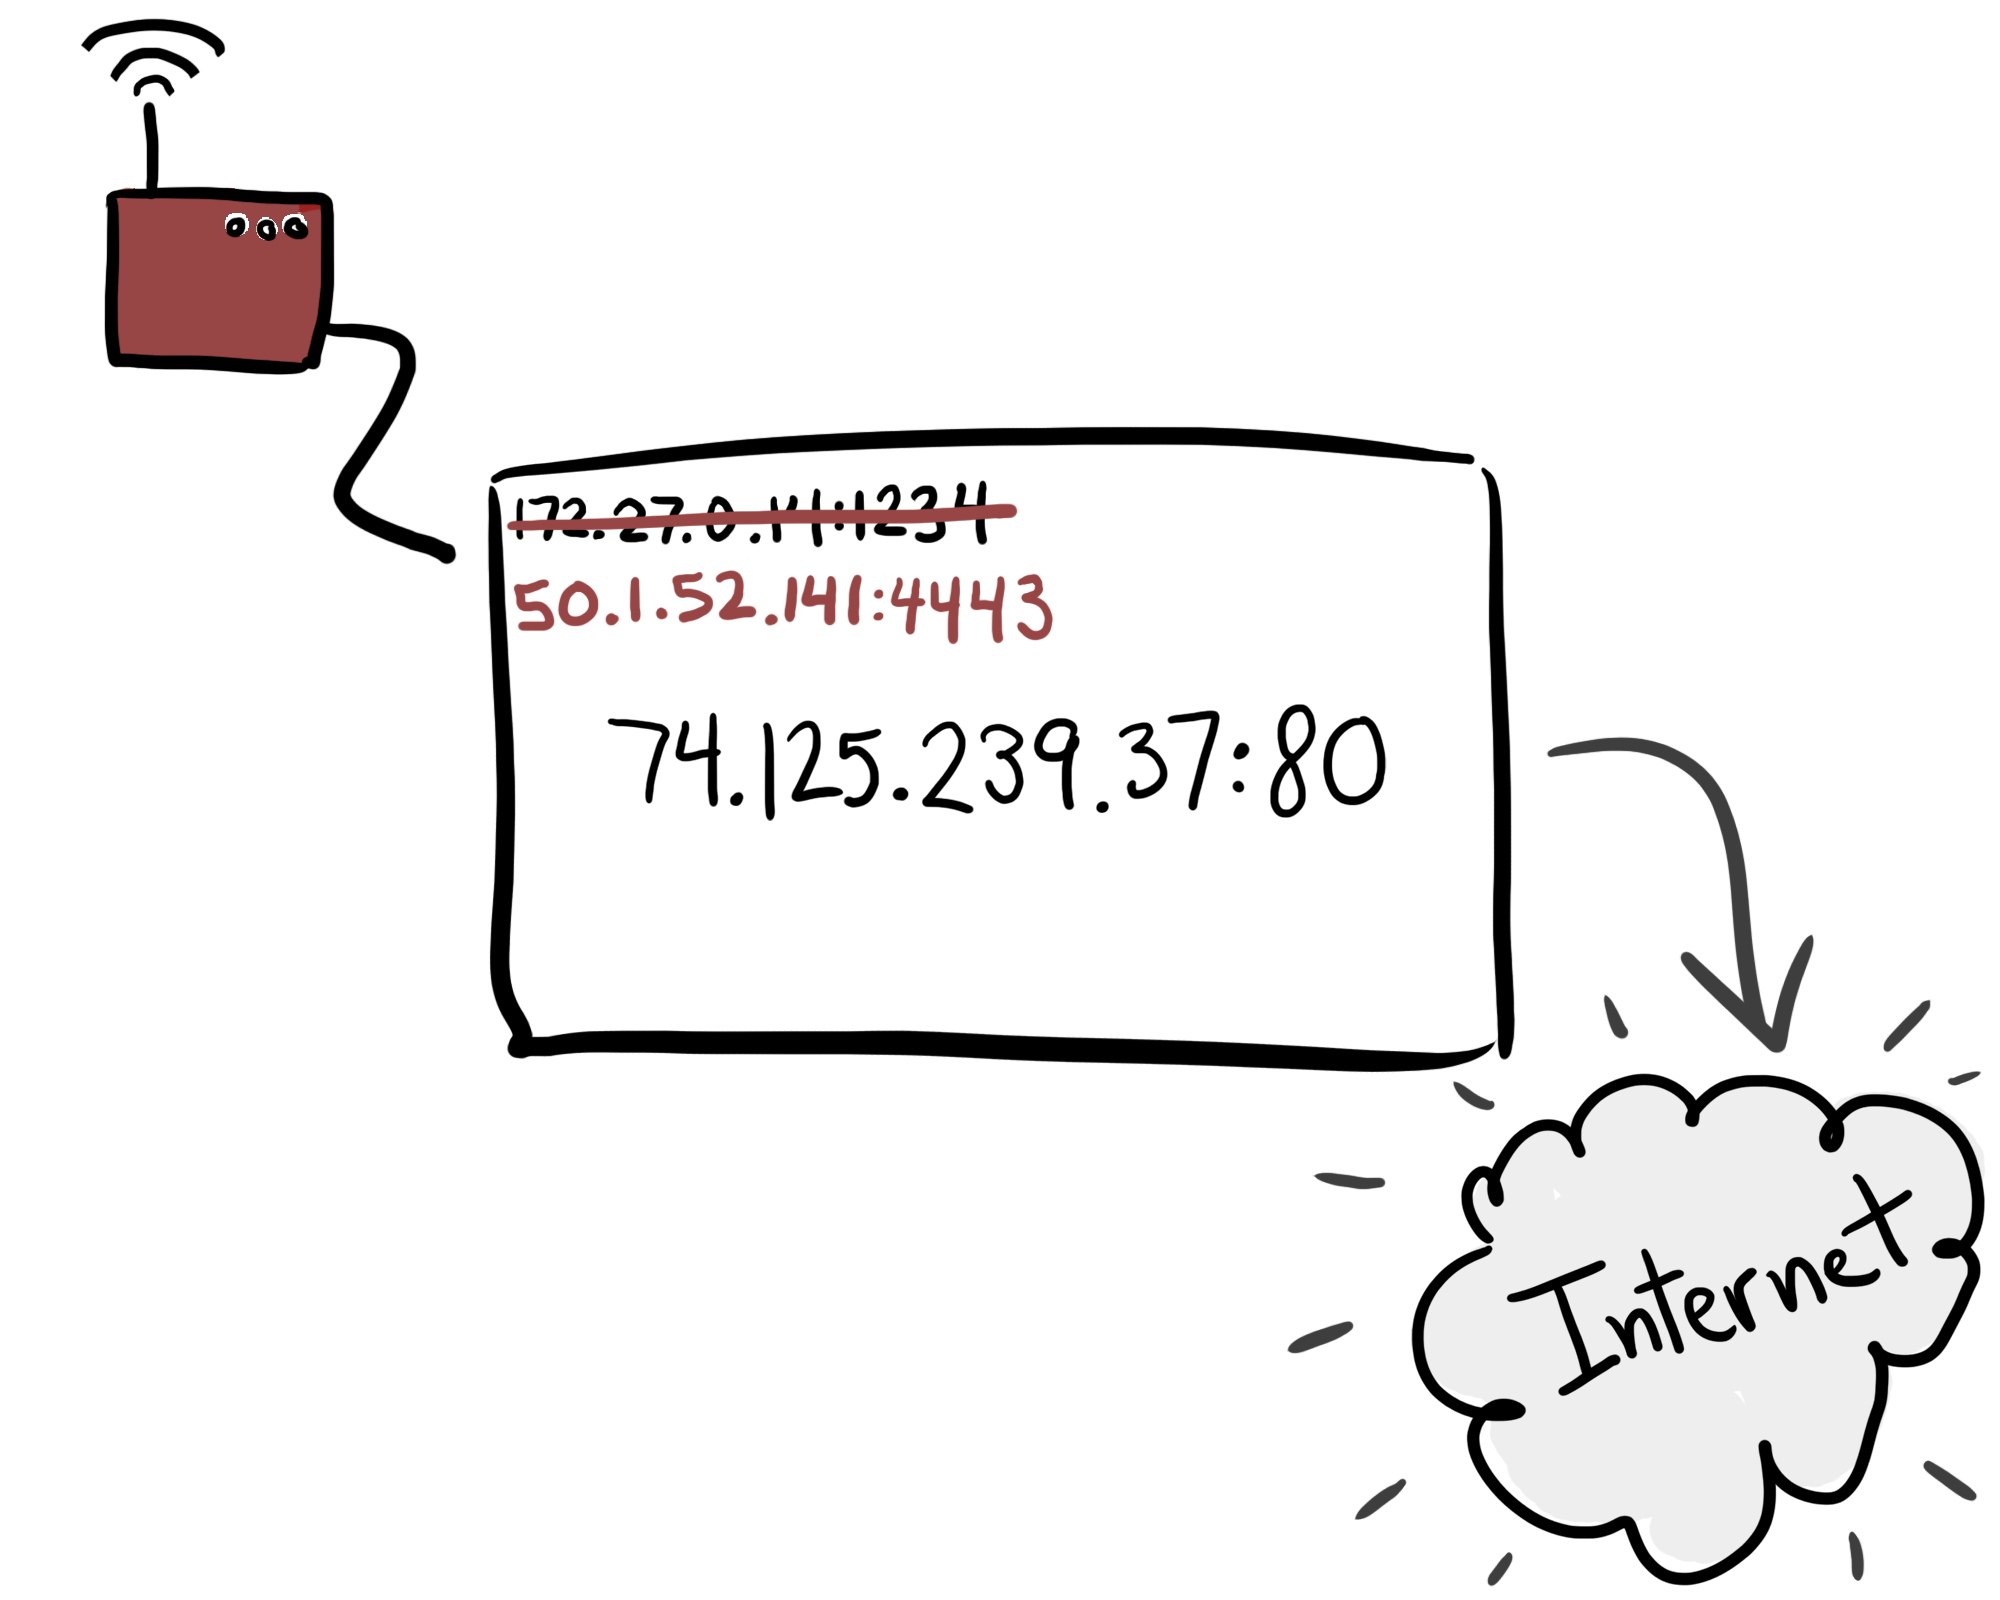 172.27.0.141:1234
50.1.52.141:4443
74.125.239.37:80
Internet